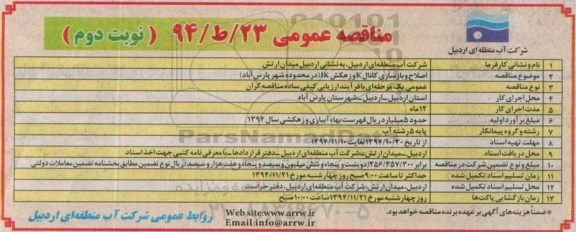 مناقصه عمومی ۲۳/ط/۹۴ (نوبت دوم)
شرکت آب منطقه ای اردبیل
۱ نام و نشانی کارفرما شرکت آب منطقه ای اردبیل به نشانی اردبیل میدان ارتش
۲ موضوع مناقصه اصلاح و بازسازی کانال K و زهکش K (در محدوده شهر پارس آباد)
۳ نوع مناقصه عمومی یک مرحله ای با فرآیند ارزیابی کیفی ساده مناقصه گران
۴ محل اجرای کار استان اردبیل - شهرستان پارس آباد
۵ مدت اجرای کار ۱۲ ماه
۶ مبلغ برآورد اولیه میلیارد ریال فهرست بهاء آبیاری و زهکشی سال ۱۳۹۴
۷ رشته و گروه پیمانکار پایه ۵ رشته آب
۸ مهلت تهیه اسناد از تاریخ ۱۳۹۴/۱۰/۳۰ لغایت ۱۳۹۴/۱۱/۱۰
۹ محل دریافت اسناد اردبیل - میدان ارتش - شرکت آب منطقه ای اردبیل - دفتر قراردادها - با معرفی نامه کتبی جهت اخذ اسناد
۱۰ مبلغ و نوع تضمین شرکت در مناقصه
۱۱ زمان تسلیم اسناد تکمیل شده حداکثر تا ساعت ۹:۰۰ صبح روز چهارشنبه مورخ ۱۳۹۴/۱۱/۲۱
۱۲ محل تسلیم اسناد تکمیل شده اردبیل، میدان ارتش، شرکت آب منطقه ای اردبیل، دفتر حراست
۱۳ زمان بازگشایی پاکت ها روز چهارشنبه مورخ ۱۳۹۴/۱۱/۲۱ ساعت ۱۰:۰۰ صبح
* ضمناً هزینه های آگهی بر عهده برنده مناقصه خواهد بود.
Website:www.arrw.ir
Email:info@arrw.ir
روابط عمومی شرکت آب منطقه ای اردبیل